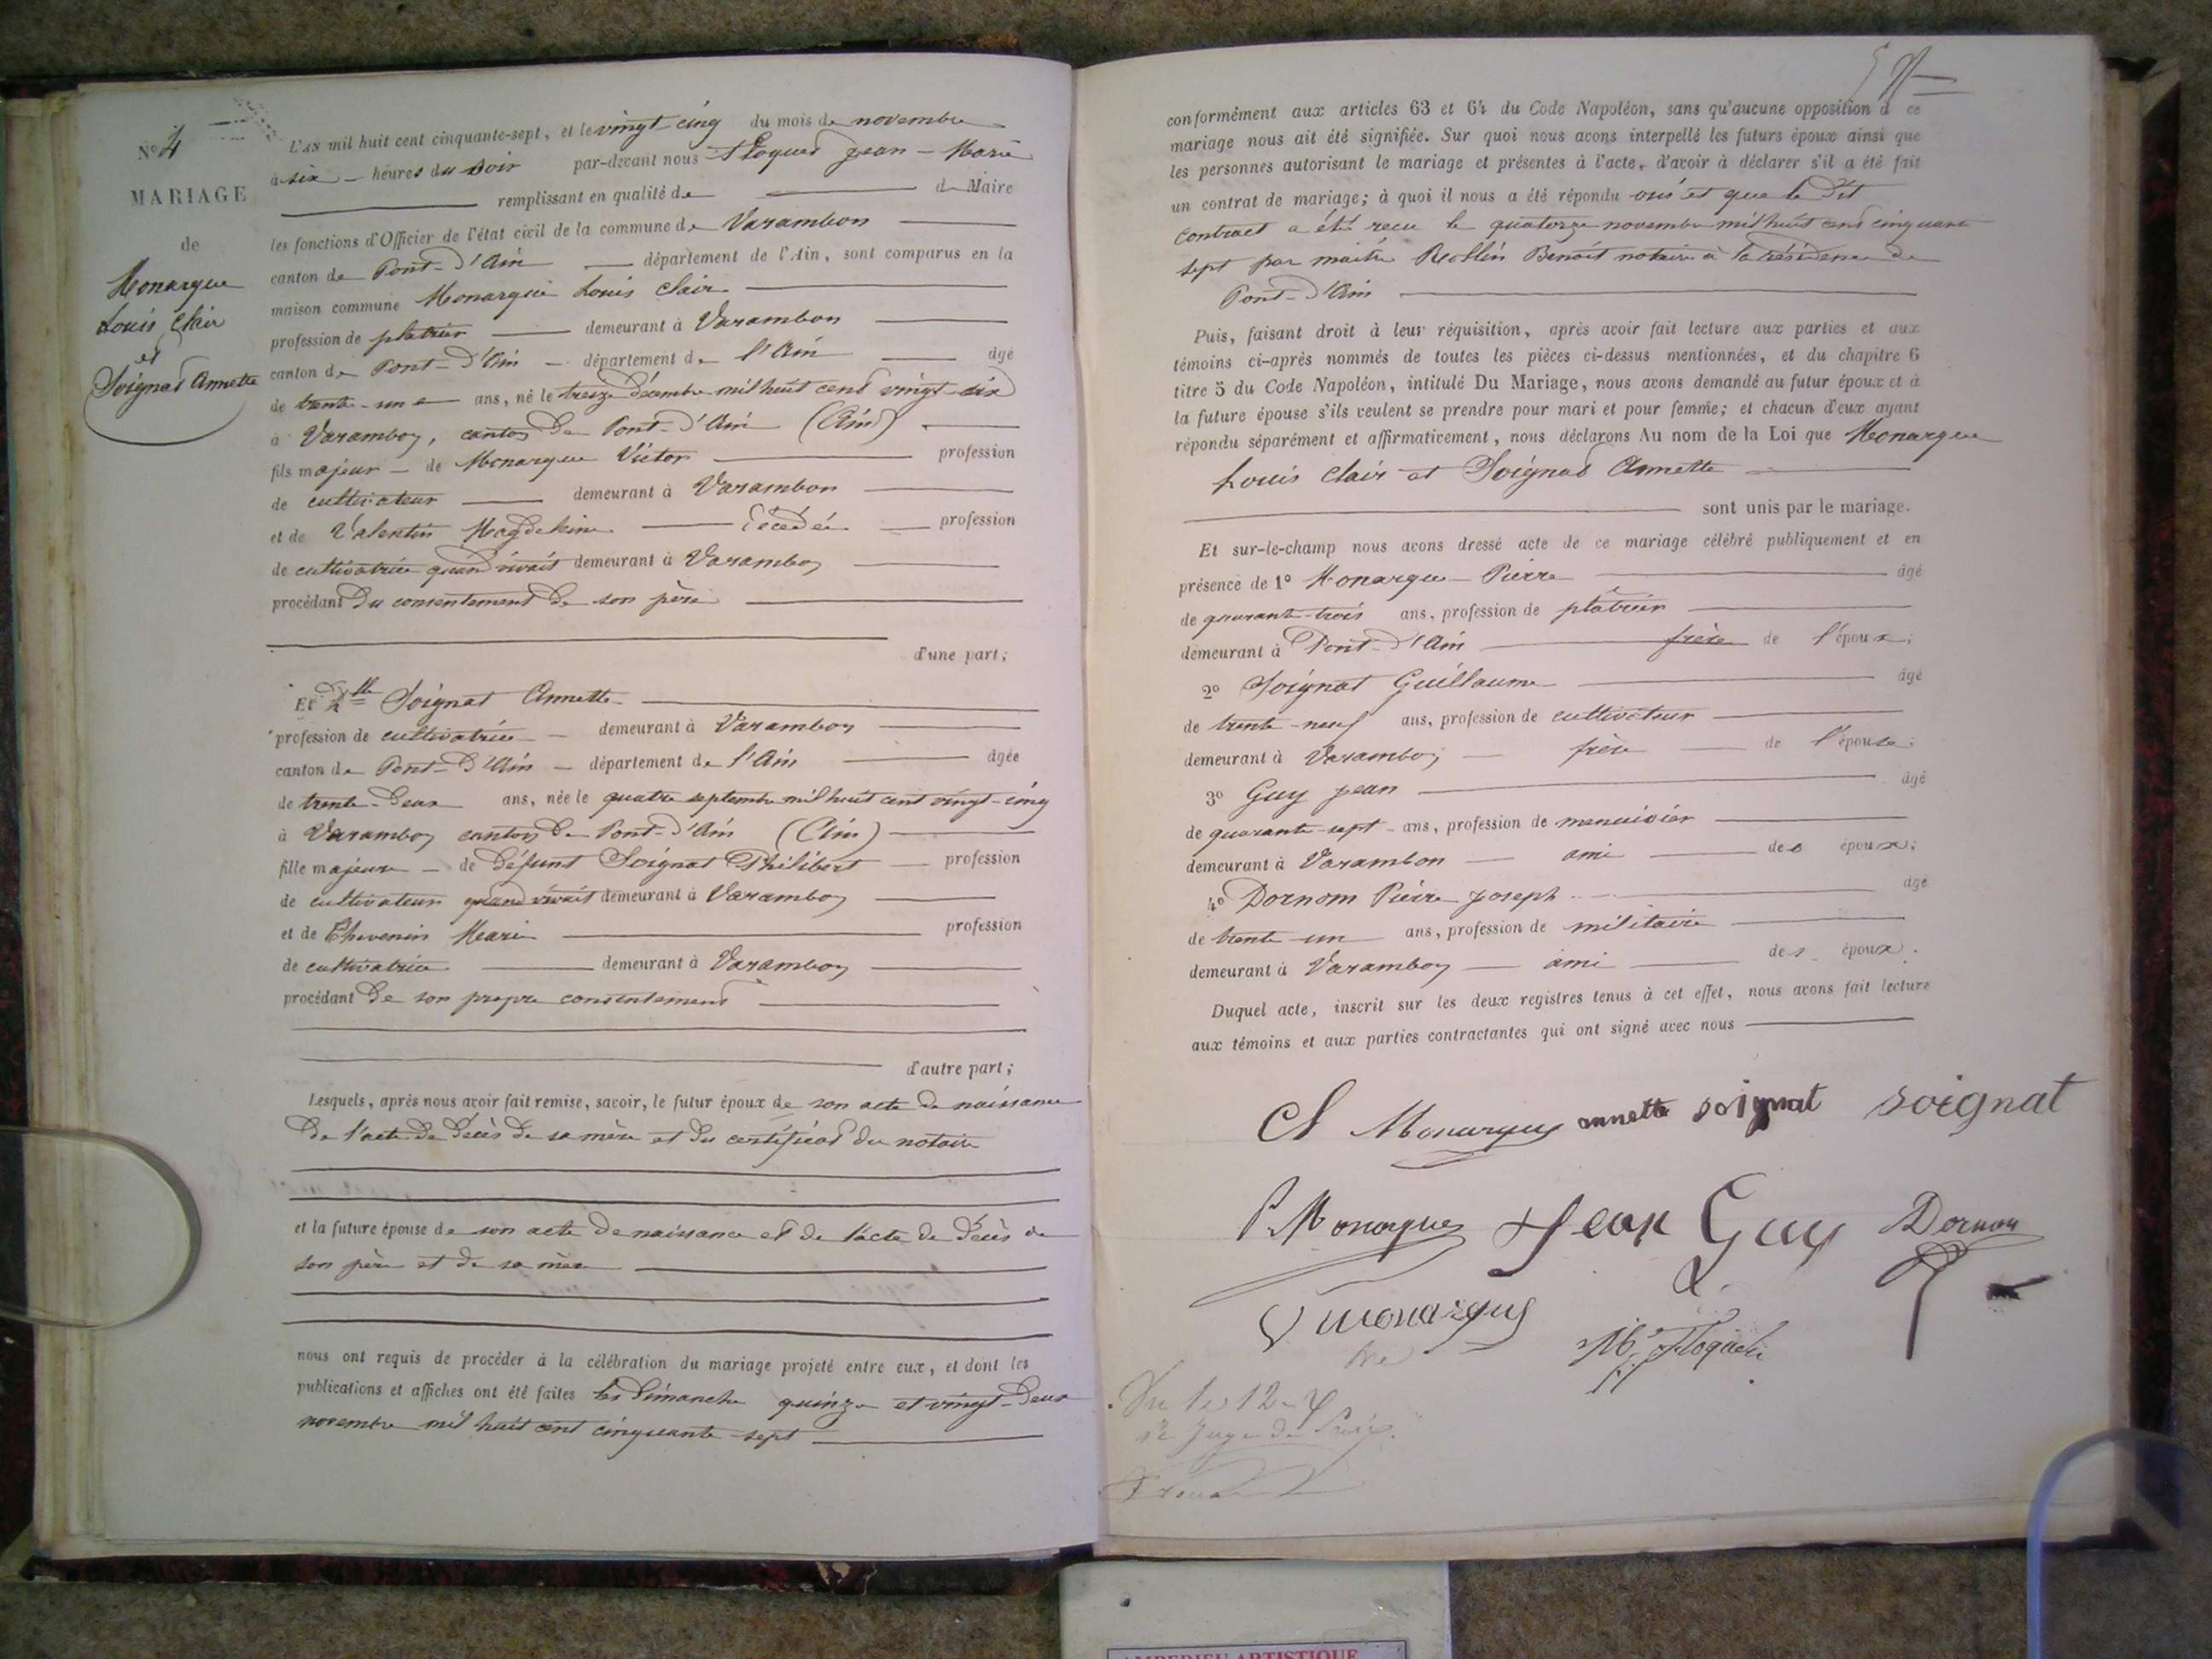 N° 4
MARIAGE
de
Monarque
Louis Clair
et
Soignat Annette
L'AN mil huit cent cinquante-sept, et le vingt-cinq du mois de novembre
à six heures du soir par-devant nous Floquet Jean-Marie
remplissant en qualité de Maire
les fonctions d'Officier de l'état civil de la commune de Varambon
canton de Pont-d'Ain département de l'Ain, sont comparus en la
maison commune Monarque Louis Clair
profession de platrier demeurant à Varambon
canton de Pont-d'Ain département de l'Ain âgé
de trente-un ans, né le treize décembre mil huit cent vingt-six
à Varambon, canton de Pont-d'Ain (Ain)
fils majeur de Monarque Victor profession
de cultivateur demeurant à Varambon
et de Valentin Magdeleine décédée profession
de cultivatrice quand vivait demeurant à Varambon
procédant du consentement de son père
d'une part;
Et Dlle Soignat Annette
profession de cultivatrice demeurant à Varambon
canton de Pont-d'Ain département de l'Ain âgée
de trente-deux ans, née le quatre septembre mil huit cent vingt-cinq
à Varambon canton de Pont-d'Ain (Ain)
fille majeure de défunt Soignat Philibert profession
de cultivateur quand vivait demeurant à Varambon
et de Thevenin Marie profession
de cultivatrice demeurant à Varambon
procédant de son propre consentement
d'autre part;
Lesquels, après nous avoir fait remise, savoir, le futur époux de son acte de naissance
de l'acte de décès de sa mère et du certificat du notaire
et la future épouse de son acte de naissance et de l'acte de décès de
son père et de sa mère
nous ont requis de procéder à la célébration du mariage projeté entre eux, et dont les
publications et affiches ont été faites les dimanche quinze et vingt-deux
novembre mil huit cent cinquante-sept
conformément aux articles 63 et 64 du Code Napoléon, sans qu'aucune opposition à ce
mariage nous ait été signifiée. Sur quoi nous avons interpellé les futurs époux ainsi que
les personnes autorisant le mariage et présentes à l'acte, d'avoir à déclarer s'il a été fait
un contrat de mariage; à quoi il nous a été répondu oui et que le dit
contract a été recu le quatorze novembre mil huit cent cinquante
sept par maitre Rollin Benoit notaire à la résidence de
Pont-d'Ain
Puis, faisant droit à leur réquisition, après avoir fait lecture aux parties et aux
témoins ci-après nommés de toutes les pièces ci-dessus mentionnées, et du chapitre 6
titre 5 du Code Napoléon, intitulé Du Mariage, nous avons demandé au futur époux et à
la future épouse s'ils veulent se prendre pour mari et pour femme; et chacun d'eux ayant
répondu séparément et affirmativement, nous déclarons Au nom de la Loi que Monarque
Louis Clair et Soignat Annette
sont unis par le mariage.
Et sur-le-champ nous avons dressé acte de ce mariage célébré publiquement et en
présence de 1° Monarque Pierre âgé
de quarante-trois ans, profession de platrier
demeurant à Pont-d'Ain frère de l'époux;
2° Soignat Guillaume âgé
de trente-neuf ans, profession de cultivateur
demeurant à Varambon frère de l'épouse;
3° Guy Jean âgé
de quarante-sept ans, profession de menuisier
demeurant à Varambon ami des époux;
4° Dornom Pierre Joseph âgé
de trente-un ans, profession de militaire
demeurant à Varambon ami des époux.
Duquel acte, inscrit sur les deux registres tenus à cet effet, nous avons fait lecture
aux témoins et aux parties contractantes qui ont signé avec nous
Cl Monarque annette soignat soignat
P. Monarque Jean Guy Dornon
V monarque
Floquet
Juge de Paix
AMBERIEU ARTISTIQUE